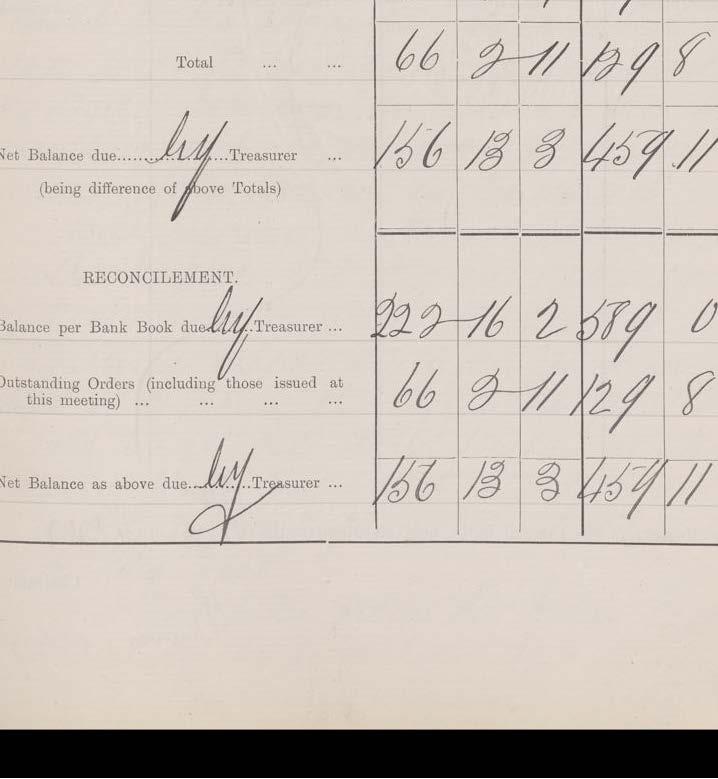 Total ... ... 66 2 11 129 8
Net Balance due..........by....Treasurer ... 156 13 3 459 11
(being difference of above Totals)
RECONCILEMENT.
Balance per Bank Book due by Treasurer ... 222 16 2 589 0
Outstanding Orders (including those issued at
this meeting) ... ... ... ... 66 2 11 129 8
Net Balance as above due...by...Treasurer ... 156 13 3 459 11